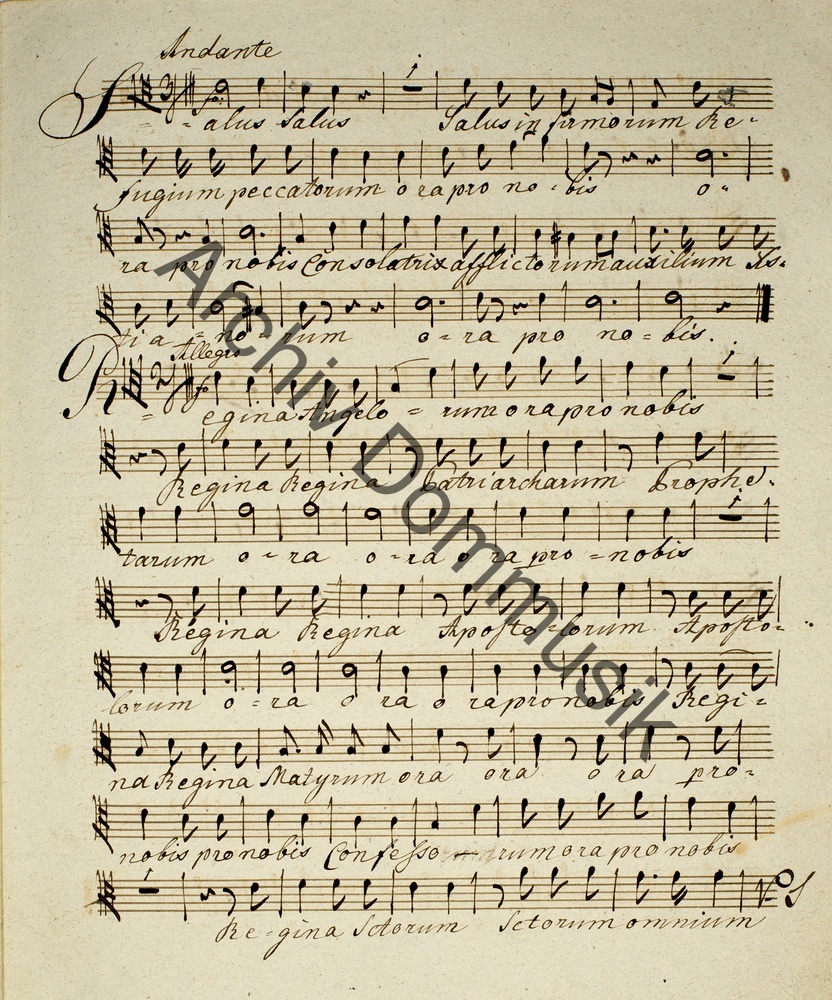 Andante
Salus Salus Salus in firmorum Re-
fugium peccatorum o ra pro no-bis o-
ra pro nobis Consolatrix afflictorum auxilium Xs-
ti a-no-rum o-ra pro no-bis.
Allegro
Regina Angelo-rum o ra pro nobis
Regina Regina Patriarcharum Prophe-
tarum o-ra o-ra o ra pro-nobis
Regina Regina Aposto-lorum Aposto-
lorum o-ra o ra o ra pro nobis Regi-
na Regina Matyrum ora ora o ra pro-
nobis pro nobis Confesso-rum ora pro nobis
Re-gina Sctorum Sctorum omnium
Archiv Dommusik